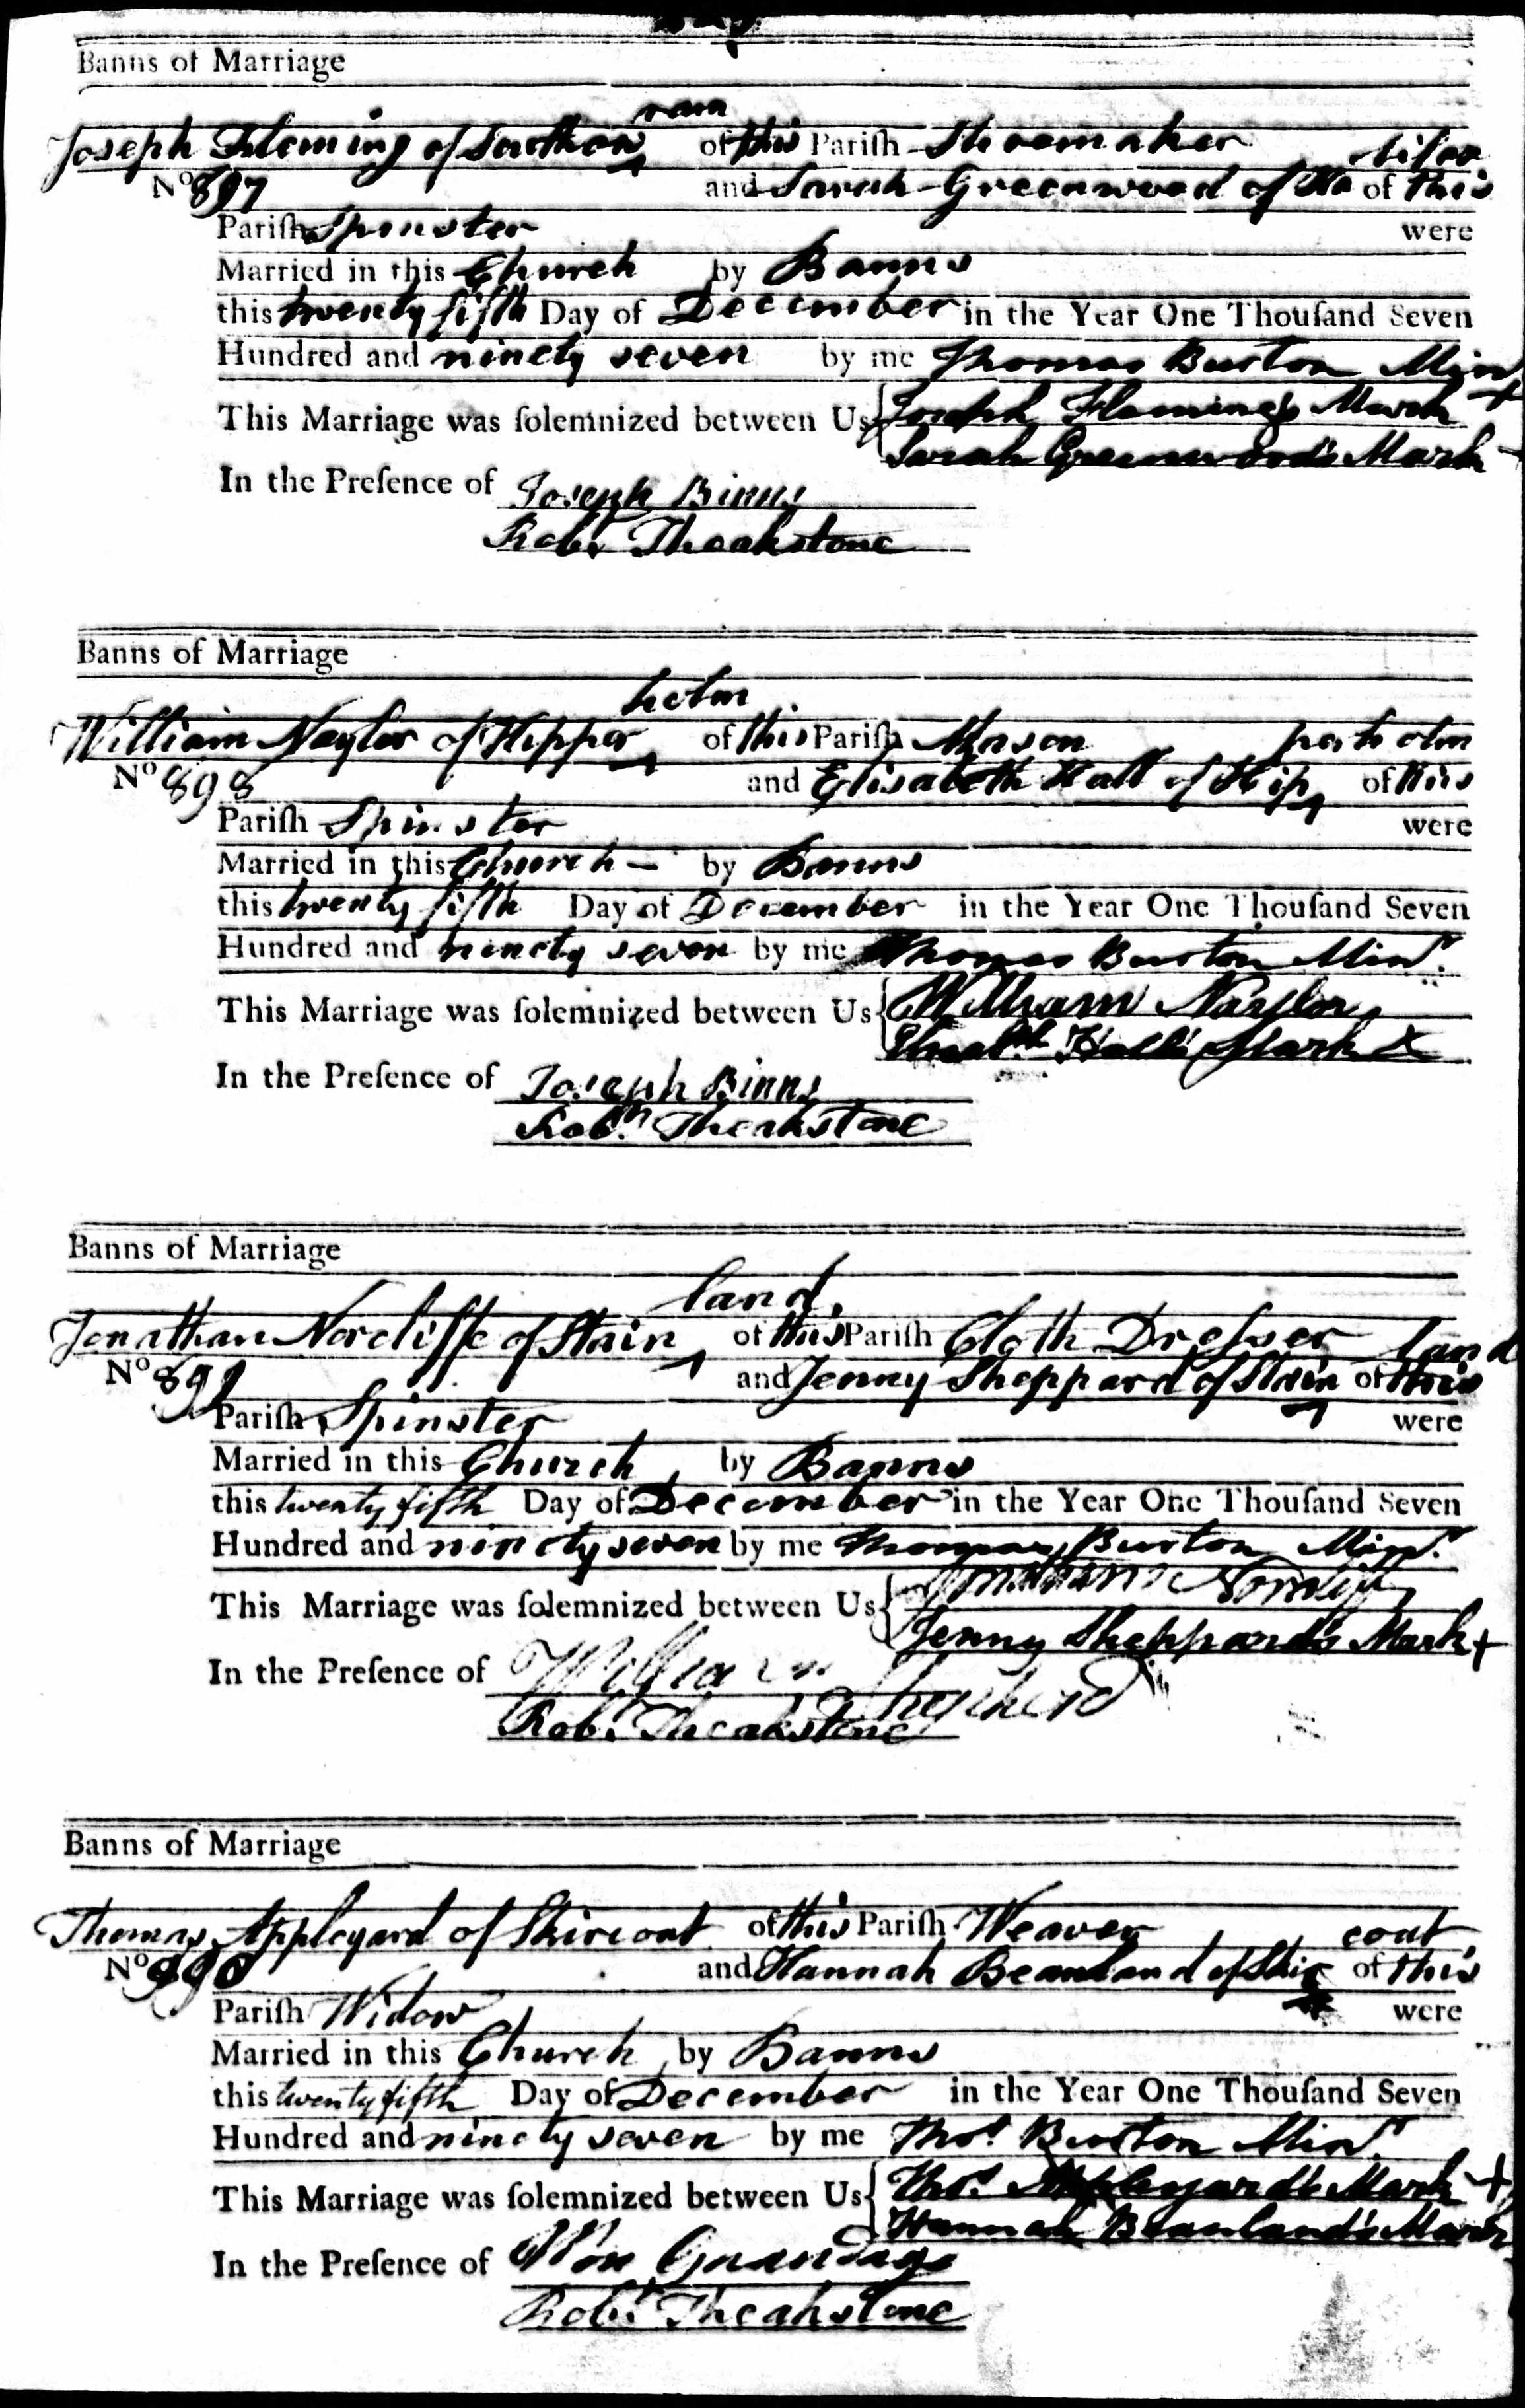 Banns of Marriage
ram
Joseph Fleming of Southow of this Parish Shoemaker lifax
No 897 and Sarah Greenwood of Ha of this
Parish Spinster were
Married in this Church by Banns
this twenty fifth Day of December in the Year One Thousand Seven
Hundred and ninety seven by me Thomas Burton Minr
This Marriage was solemnized between Us Joseph Fleming's Mark +
Sarah Greenwood's Mark
In the Presence of Joseph Binns
Robt Theakstone
Banns of Marriage
holm
William Naylor of Hipper of this Parish Mason perholm
No 898 and Elisabeth Hall of Hip of this
Parish Spinster were
Married in this Church – by Banns
this twenty fifth Day of December in the Year One Thousand Seven
Hundred and ninety seven by me Thomas Burton Minr
This Marriage was solemnized between Us William Naylor
Elisabth Hall's Mark X
In the Presence of Joseph Binns
Robt Theakstone
Banns of Marriage
land
Jonathan Norcliffe of Stain of this Parish Cloth Dresser land
No 899 and Jenny Sheppard of Stain of this
Parish Spinster were
Married in this Church by Banns
this twenty fifth Day of December in the Year One Thousand Seven
Hundred and ninety seven by me Thomas Burton Minr
This Marriage was solemnized between Us Jonathan Norcliff
Jenny Sheppard's Mark +
In the Presence of William Shepherd
Robt Theakstone
Banns of Marriage
Thomas Appleyard of Skircoat of this Parish Weaver coat
No and Hannah Beanland of Skir of this
Parish Widow were
Married in this Church by Banns
this twenty fifth Day of December in the Year One Thousand Seven
Hundred and ninety seven by me Thos Burton Minr
This Marriage was solemnized between Us Thos Appleyard's Mark +
Hannah Beanland's Mark
In the Presence of Wm Grandage
Robt Theakstone